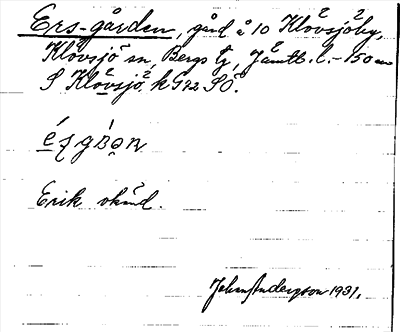 Ers-gården, gård å 10 Klövsjöby,
Klövsjö sn, Bergs tg, Jämtl. l. - 150 m
S Klövsjö k G92 SO.
Erik okänd.
John Andersson 1931.